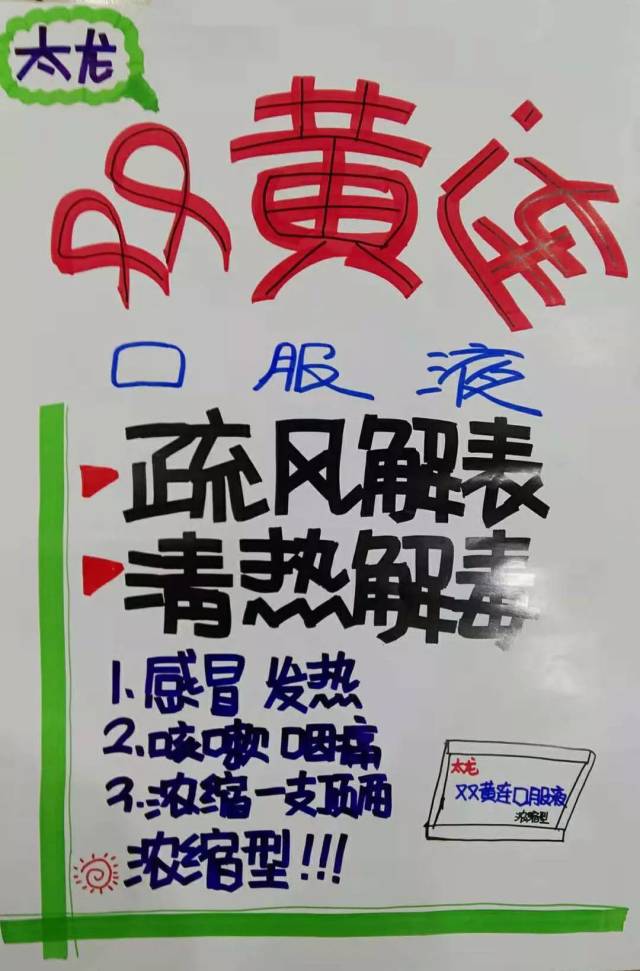 太龙
双黄连
口服液
疏风解表
清热解毒
1.感冒 发热
2.咳嗽 咽痛
3.浓缩一支顶两
浓缩型!!!
太龙
双黄连口服液
浓缩型